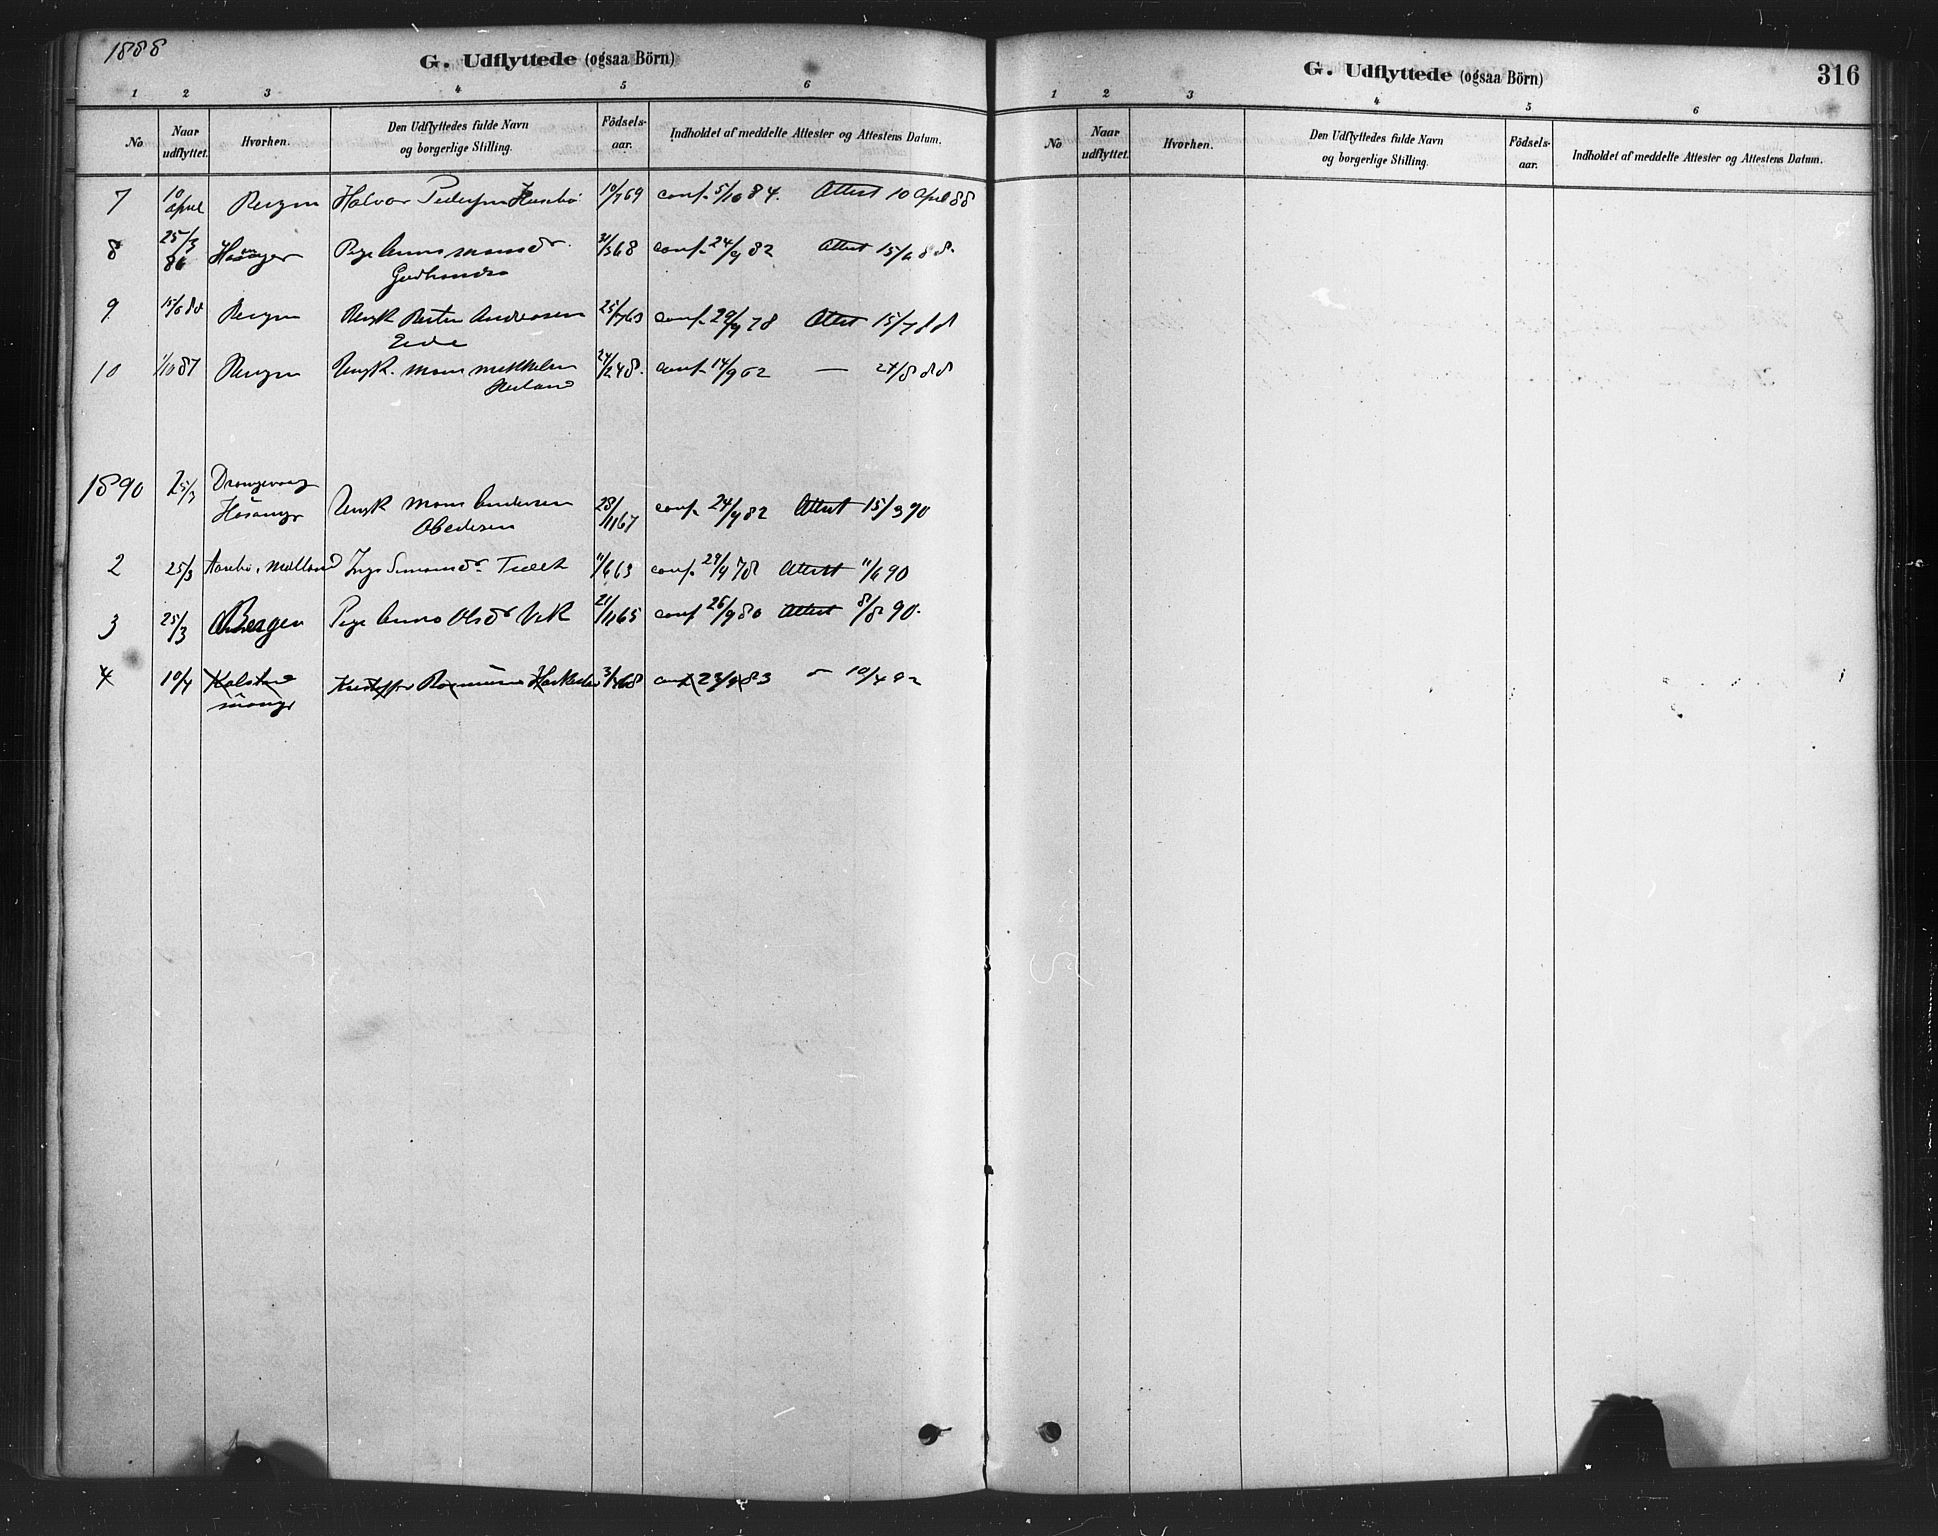 1888
G. Udflyttede (ogsaa Börn)
1 2 3 4 5 6
No
Naar udflyttet.
Hvorhen.
Den Udflyttedes fulde Navn og borgerlige Stilling.
Födsels-aar.
Indholdet af meddelte Attester og Attestens Datum.
7 10 april Bergen Halvor Pedersen Husebö 10/7 69 conf. 5/10 84. Attest 10 April 88
8 25/3 86 Hosanger Pige Anna Monsdr. 31/5 68 conf. 24/9 82 Attest 15/6 88.
9 Bergen Ungk Andersen 25/7 63 conf. 29/9 78 Attest 15/7 88
Eide
10 1/10 87 Bergen Ungk. Mons Mikkelsen 24/12 48. conf. 14/9 62 — 24/8 88
1890 25/3
Hosanger Ungk Mons Andersen 28/11 67 conf. 24/9 82 Attest 15/3 90
2 25/3 Inga Simonsdr. Tveit 11/6 63 conf. 29/9 78 Attest 11/6 90
3 25/3 Bergen Pige Anna Olsdr Vik 21/11 65 conf 26/9 80 Attest 8/8 90.
4 10/4 Kristoffer Rasmussen 3/4 68 conf 23/9 83 10/4 92
G. Udflyttede (ogsaa Börn)
316
1 2 3 4 5 6
No
Naar udflyttet.
Hvorhen.
Den Udflyttedes fulde Navn og borgerlige Stilling.
Födsels-aar.
Indholdet af meddelte Attester og Attestens Datum.